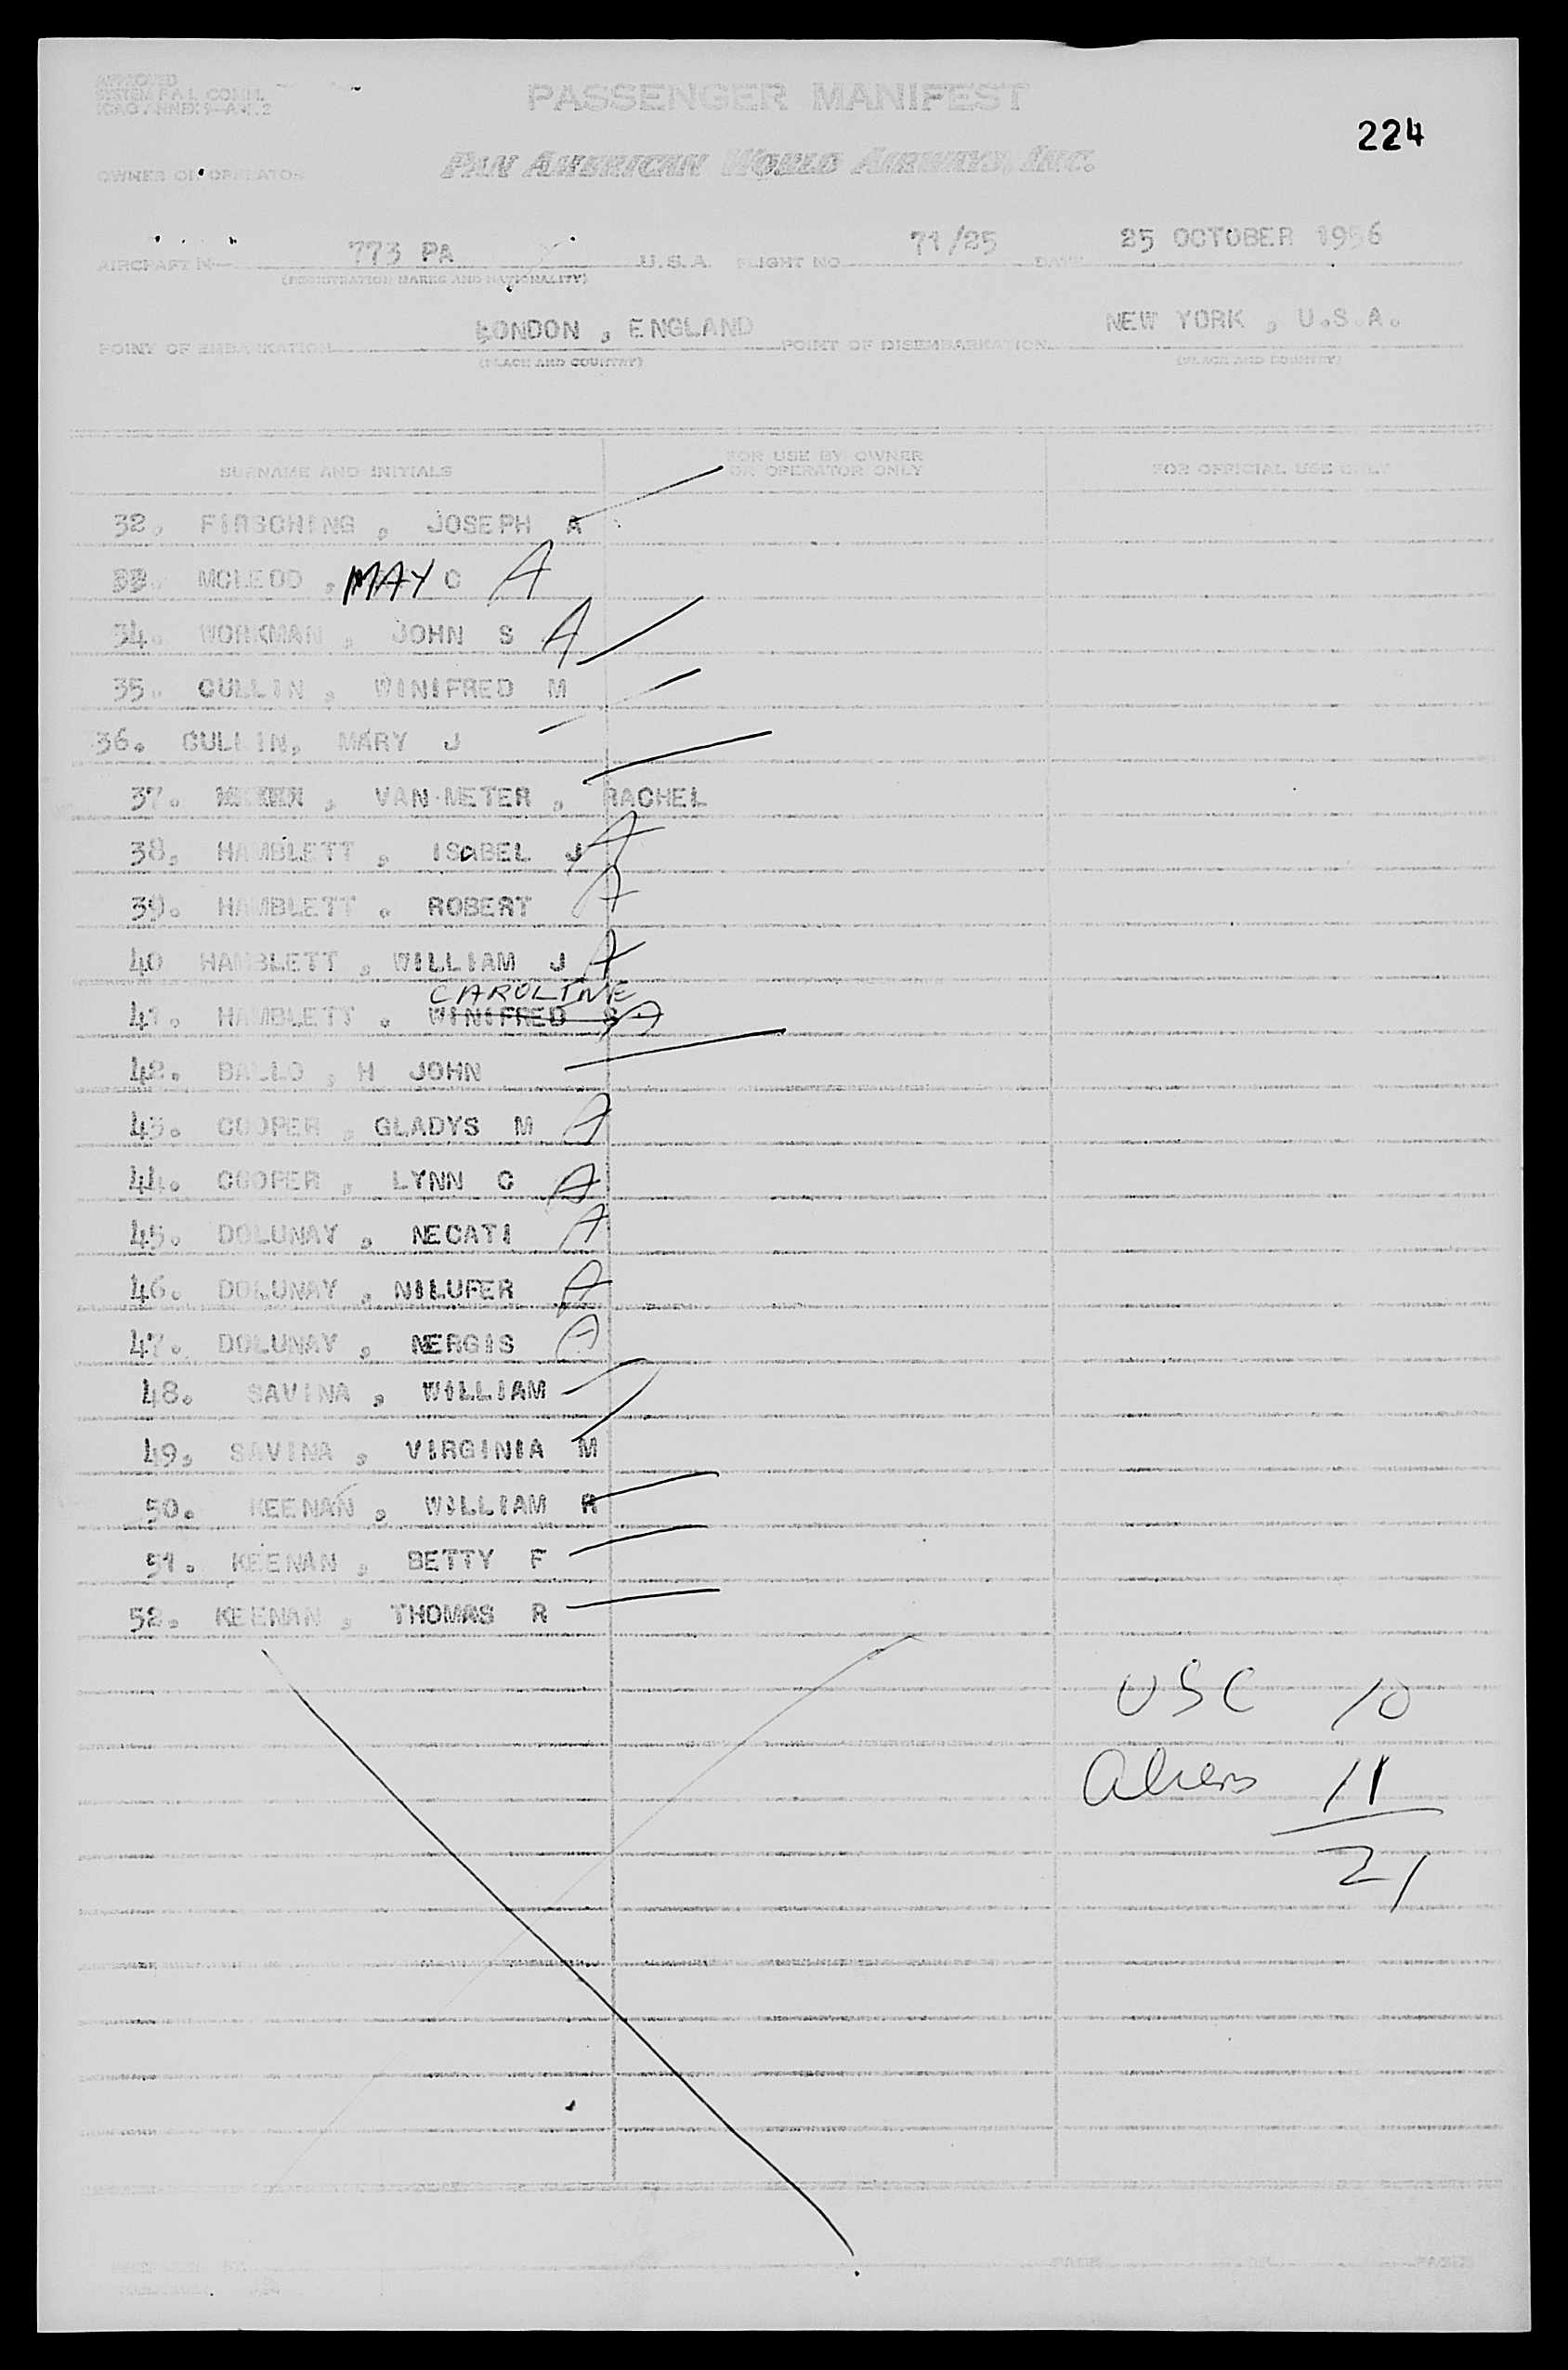 APPROVED
SYSTEM F.A.L. COMM.
ICAO ANNEX 9-APP. 2
PASSENGER MANIFEST
224
OWNER OR OPERATOR
PAN AMERICAN WORLD AIRWAYS, INC.
AIRCRAFT N— 773 PA U.S.A. FLIGHT NO 71/25 DATE 25 OCTOBER 1956
(REGISTRATION MARKS AND NATIONALITY)
POINT OF EMBARKATION LONDON , ENGLAND POINT OF DISEMBARKATION NEW YORK , U.S.A.
(PLACE AND COUNTRY) (PLACE AND COUNTRY)
SURNAME AND INITIALS FOR USE BY OWNER OR OPERATOR ONLY FOR OFFICIAL USE ONLY
32. FIRSCHING , JOSEPH A
33. MCLEOD , MAY C A
34. WORKMAN , JOHN S A
35. CULLIN , WINIFRED M
36. CULLIN, MARY J
37. , VAN-METER , RACHEL
38. HAMBLETT , ISABEL J A
39. HAMBLETT . ROBERT A
40 HAMBLETT , WILLIAM J A
CAROLINE
41. HAMBLETT . WINIFRED S A
42. BALLO , H JOHN
43. COOPER , GLADYS M A
44. COOPER , LYNN C A
45. DOLUNAY , NECATI A
46. DOLUNAY , NILUFER A
47. DOLUNAY , NERGIS A
48. SAVINA , WILLIAM
49. SAVINA , VIRGINIA M
50. KEENAN , WILLIAM R
51. KEENAN , BETTY F
52. KEENAN , THOMAS R
USC 10
Aliens 11
21
PAGE OF PAGES